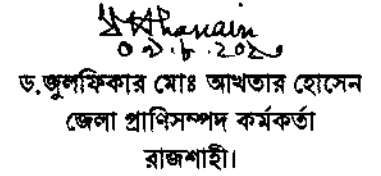 ০৯.৮.২০২০
ড.জুলফিকার মোঃ আখতার হোসেন
জেলা প্রাণিসম্পদ কর্মকর্তা
রাজশাহী।